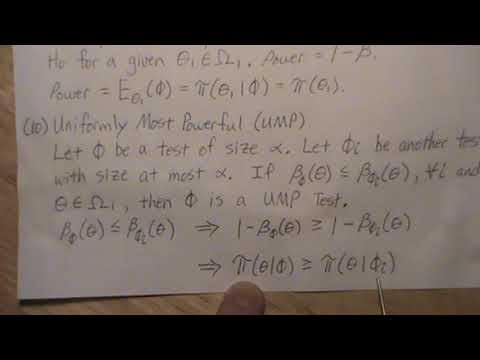 Ho for a given θ₁ ∈ Ω₁. Power = 1 - β.
Power = E_θ₁(Φ) = π(θ₁|Φ) = π(θ₁).
(10) Uniformly Most Powerful (UMP)
Let Φ be a test of size α. Let Φi be another test
with size at most α. If β_Φ(θ) ≤ β_Φi(θ), ∀i and
θ ∈ Ω₁, then Φ is a UMP Test.
β_Φ(θ) ≤ β_Φi(θ) ⇒ 1-β_Φ(θ) ≥ 1-β_Φi(θ)
⇒ π(θ|Φ) ≥ π(θ|Φi)